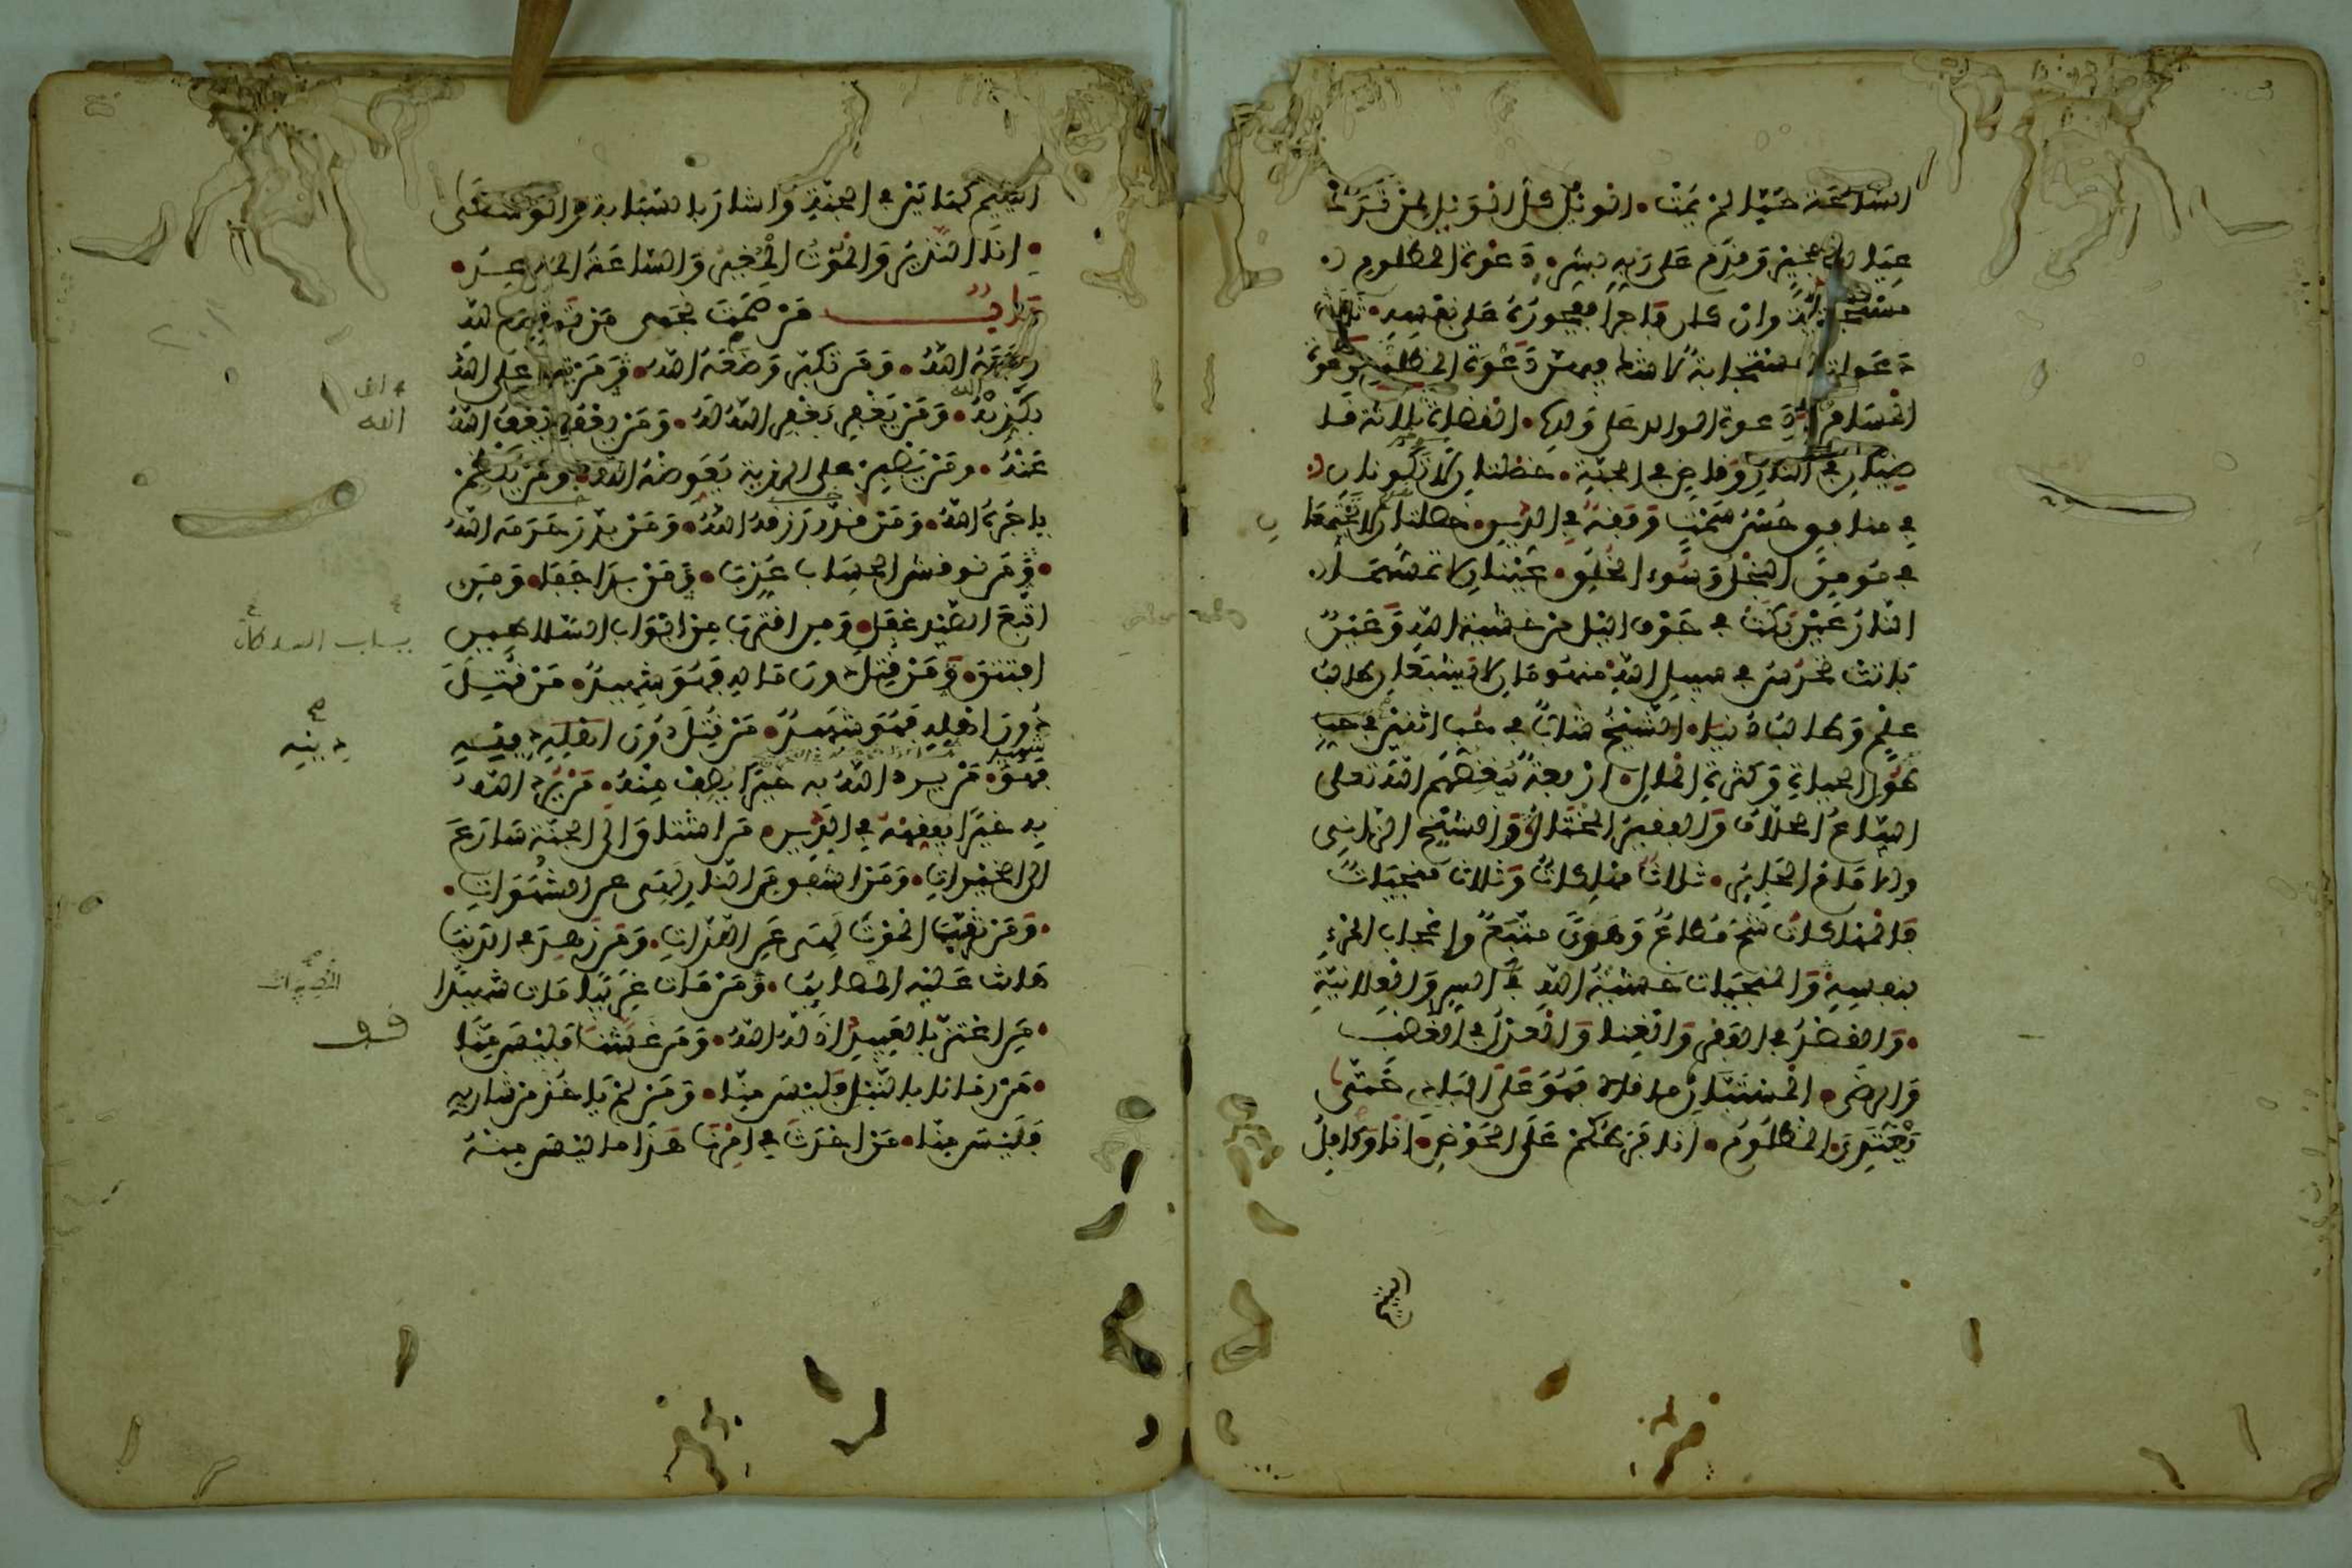 الساعة حيا لم يمت الويل كل الويل لمن ترك
عياله بخير وقدم على ربه بشر دعوة المظلوم
مستجابة وان كان فاجرا ففجوره على نفسه ثلاث
دعوات مستجابة لا شك فيهن دعوة المظلوم ودعوة
المسافر ودعوة الوالد على ولده القضاة ثلاثة قا
ضيان في النار وقاض في الجنة خصلتان لا تكونان
في منافق حسن سمت وفقه في الدين خصلتان لا تجتمعا
ن في مومن البخل وسوء الخلق عينان لا تمسهما
النار عين بكت في جوف اليل من خشية الله وعين
باتت تحرس في سبيل الله منهومان لا يشبعان طالب
علم وطالب دنيا الشيخ شاب في حب اثنين في حب
طول الحياة وكثرة المال اربعة يبغضهم الله تعلى
البياع الحلاف والفقير المختال والشيخ الزاني
والامام الجاير ثلاث مهلكات وثلاث منجيات
فالمهلكات شح مطاع وهوى متبع واعجاب المرء
بنفسه والمنجيات خشية الله في السر والعلانية
والقصد في الفقر والغنا والعدل في الغضب
والرضى المستبان ما قالا فهو على البادي حتى
يعتدي المظلوم انا فرطكم على الحوض انا وكافل
اليتيم
اليتيم كهاتين في الجنة واشار بالسبابة والوسطى
انا النذير والموت المغير والساعة الموعد
باب من صمت نجى من تواضع لله
رفعه الله ومن تكبر وضعه الله ومن يتال على الله
يكذبه ومن يغفر يغفر الله له ومن يعف يعف الله
عنه ومن يصبر على الرزية يعوضه الله ومن يكظم
ياجره الله ومن قدر رزقه الله ومن بذر حرمه الله
ومن نوقش الحساب عذب ومن بدا جفا ومن
اتبع الصيد غفل ومن اقترب من ابواب السلاطين
افتتن ومن قتل دون ماله فهو شهيد من قتل
دون اهله فهو شهيد من قتل دون دينه
فهو شهيد من يرد الله به خيرا يصب منه من يرد الله
به خيرا يفقهه في الدين من اشتاق الى الجنة سارع
الى الخيرات ومن اشفق من النار لهى عن الشهوات
ومن ترقب الموت لهى عن اللذات ومن زهد في الدنيا
هانت عليه المصايب ومن مات غريبا مات شهيدا
من اعتز بالعبيد اذله الله ومن غشنا فليس منا
من رمانا بالنبل فليس منا ومن لم ياخذ من شاربه
فليس منا من احدث في امرنا هذا ما ليس منه
الله
دينه